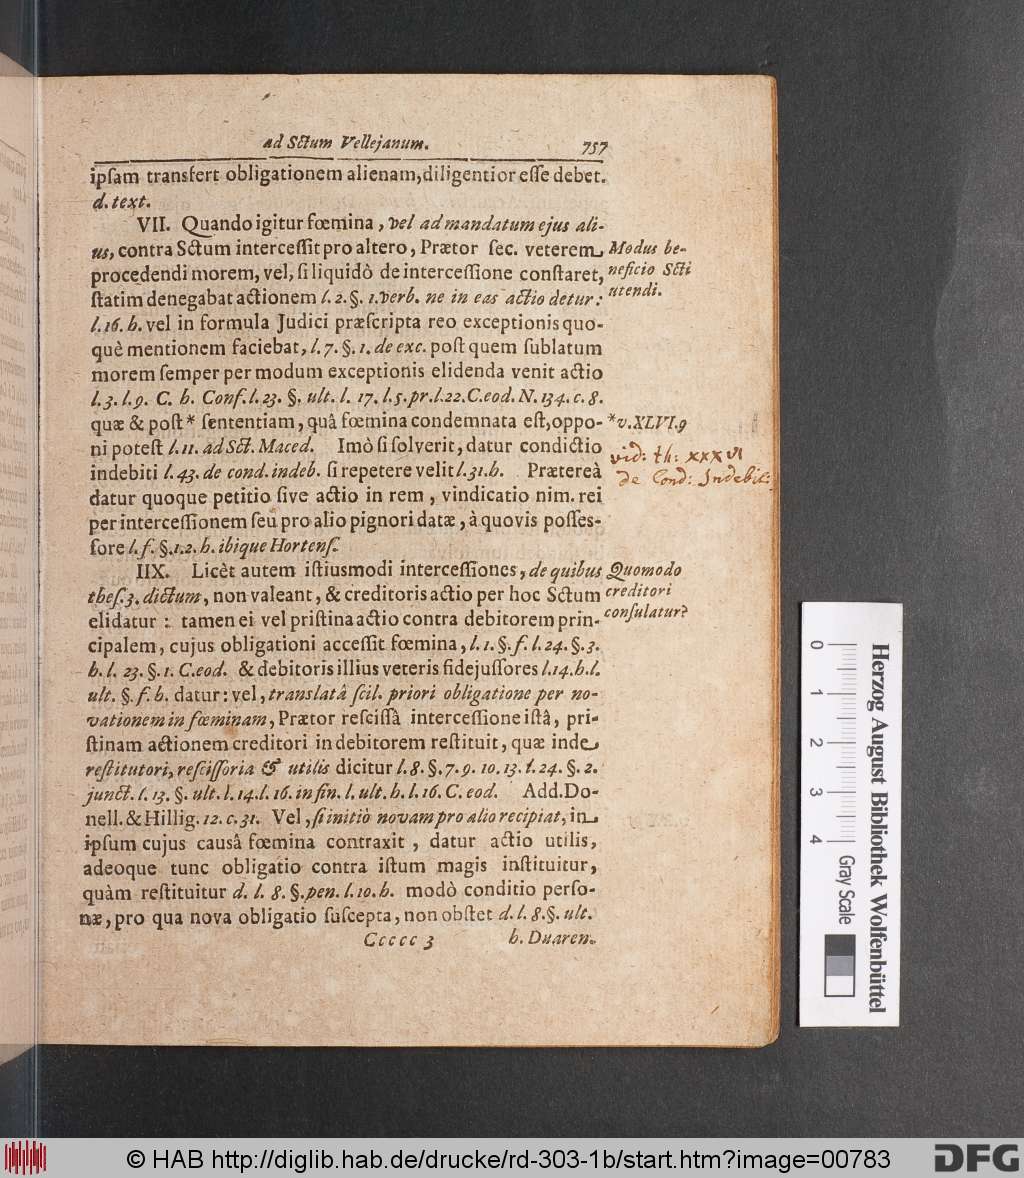 ad Sctum Vellejanum. 757
ipſam transfert obligationem alienam, diligentior eſſe debet.
d. text.
VII. Quando igitur fœmina, vel ad mandatum ejus ali-
us, contra Sctum interceſſit pro altero, Prætor ſec. veterem
procedendi morem, vel, ſi liquidò de interceſſione conſtaret,
ſtatim denegabat actionem l. 2. §. 1. verb. ne in eas actio detur:
Modus be-
neficio Scti
utendi.
l. 16. h. vel in formula Judici præſcripta reo exceptionis quo-
què mentionem faciebat, l. 7. §. 1. de exc. poſt quem ſublatum
morem ſemper per modum exceptionis elidenda venit actio
l. 3. l. 9. C. h. Conf. l. 23. §. ult. l. 17. l. 5. pr. l. 22. C. eod. N. 134. c. 8.
quæ & poſt * ſententiam, quâ fœmina condemnata eſt, oppo-
*v. XLVI. 9
ni poteſt l. 11. ad Sct. Maced. Imò ſi ſolverit, datur condictio
indebiti l. 43. de cond. indeb. ſi repetere velit l. 31. h. Prætereà
vid: th: XXXVI
de Cond: Indebit:
datur quoque petitio ſive actio in rem, vindicatio nim. rei
per interceſſionem ſeu pro alio pignori datæ, à quovis poſſeſ-
ſore l. f. §. 1. 2. h. ibique Hortenſ.
IIX. Licèt autem iſtiusmodi interceſſiones, de quibus
theſ. 3. dictum, non valeant, & creditoris actio per hoc Sctum
elidatur: tamen ei vel priſtina actio contra debitorem prin-
Quomodo
creditori
conſulatur?
cipalem, cujus obligationi acceſſit fœmina, l. 1. §. f. l. 24. §. 3.
h. l. 23. §. 1. C. eod. & debitoris illius veteris fidejuſſores l. 14. h. l.
ult. §. f. h. datur: vel, translatâ ſcil. priori obligatione per no-
vationem in fœminam, Prætor reſciſſâ interceſſione iſtâ, pri-
ſtinam actionem creditori in debitorem reſtituit, quæ inde
reſtitutori, reſciſſoria & utilis dicitur l. 8. §. 7. 9. 10. 13. l. 24. §. 2.
junct. l. 13. §. ult. l. 14. l. 16. in fin. l. ult. h. l. 16. C. eod. Add. Do-
nell. & Hillig. 12. c. 31. Vel, ſi initiò novam pro alio recipiat, in
ipſum cujus causâ fœmina contraxit, datur actio utilis,
adeoque tunc obligatio contra iſtum magis inſtituitur,
quàm reſtituitur d. l. 8. §. pen. l. 10. h. modò conditio perſo-
næ, pro qua nova obligatio ſuſcepta, non obſtet d. l. 8. §. ult.
Ccccc 3 h. Duaren.
0 1 2 3 4 Gray Scale
Herzog August Bibliothek Wolfenbüttel
© HAB http://diglib.hab.de/drucke/rd-303-1b/start.htm?image=00783
DFG